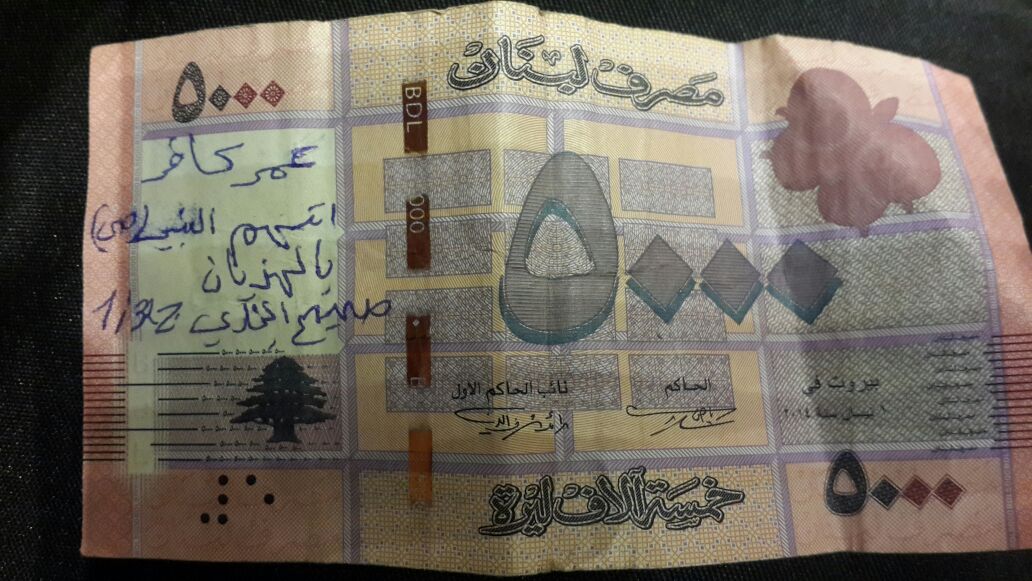 مصرف لبنان
٥٠٠٠
عمر كافر
اتهم النبي (ص)
بالهذيان
صحيح البخاري
BDL
000
٥٠٠٠
نائب الحاكم الأول
الحاكم
بيروت في
١ نيسان سنة ٢٠١٤
خمسة آلاف ليرة
٥٠٠٠